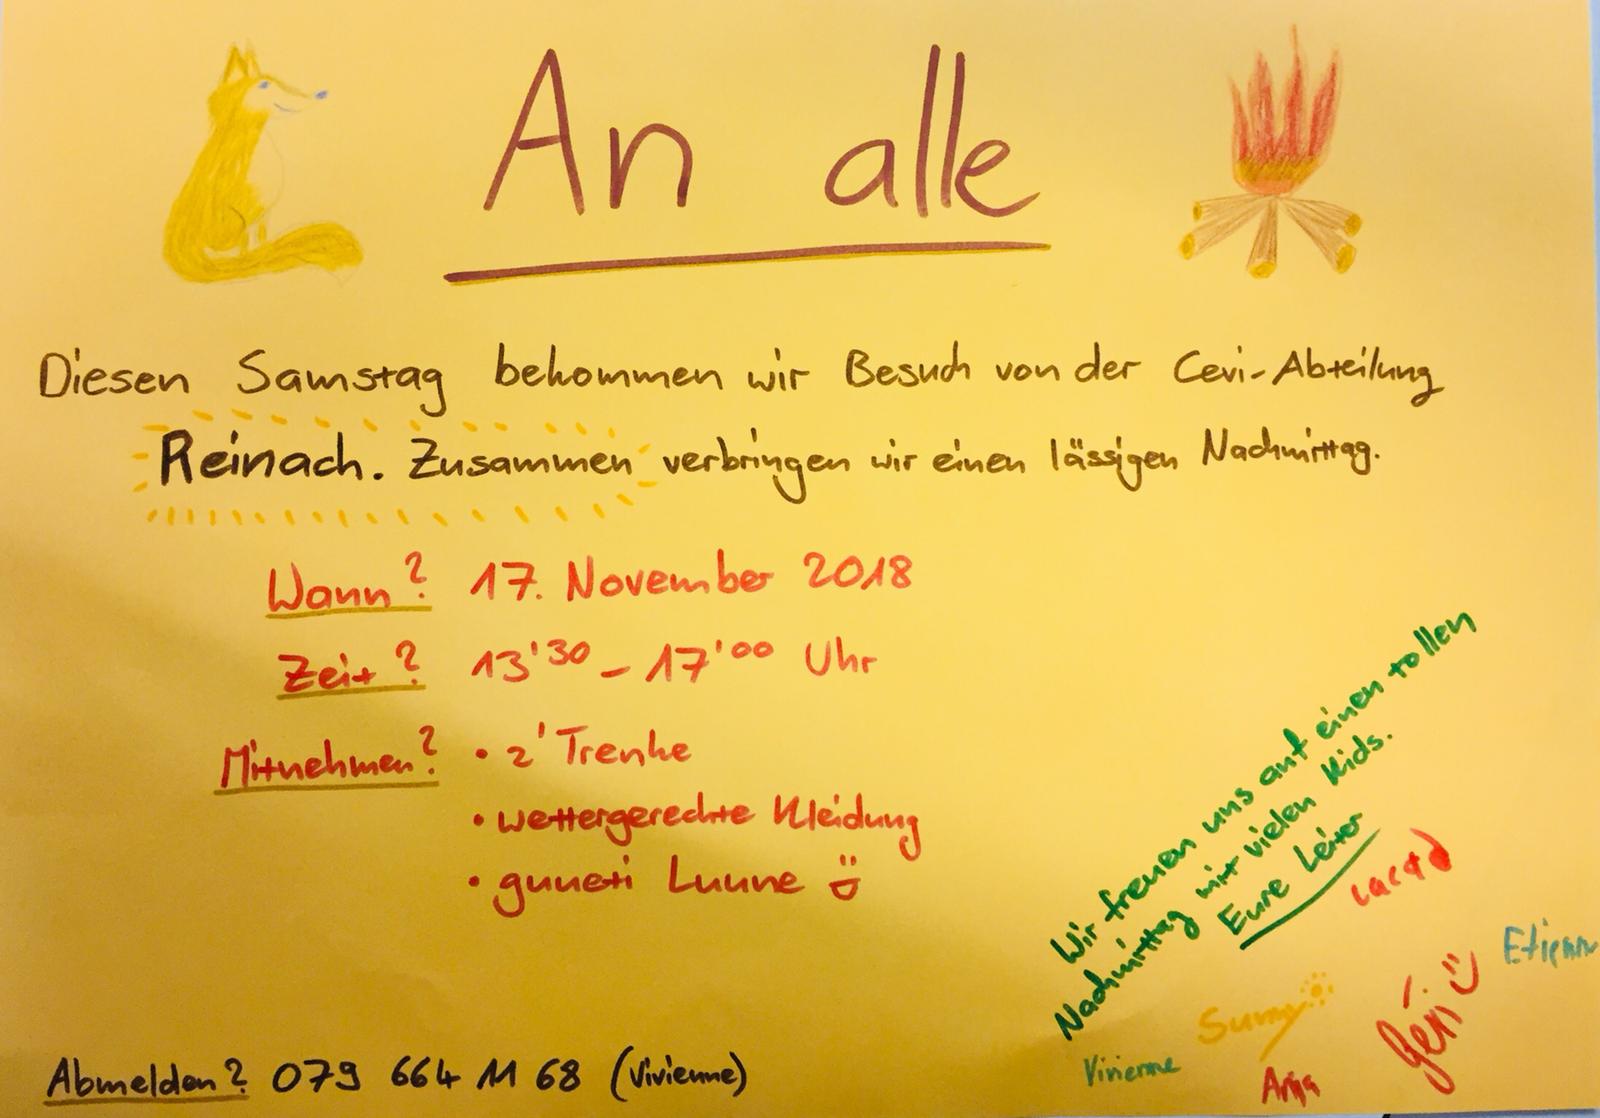 An alle
Diesen Samstag bekommen wir Besuch von der Cevi-Abteilung
Reinach. Zusammen verbringen wir einen lässigen Nachmittag.
Wann? 17. November 2018
Zeit? 13'30 - 17'00 Uhr
Mitnehmen? • z'Trenke
• wettergerechte Kleidung
• gueti Luune
Wir freuen uns auf einen tollen
Nachmittag mit vielen Kids.
Eure Leiter
Etienne
Sunny
Vivienne
Anja
Abmelden? 079 664 11 68 (Vivienne)